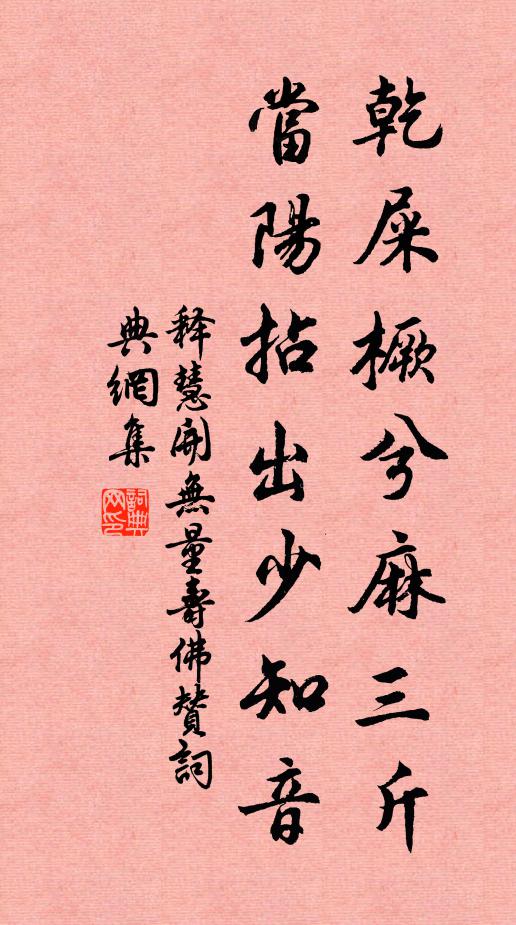 乾屎橛兮麻三斤
當陽拈出少知音
释慧開無量壽佛贊詞
典網集
詞典網印